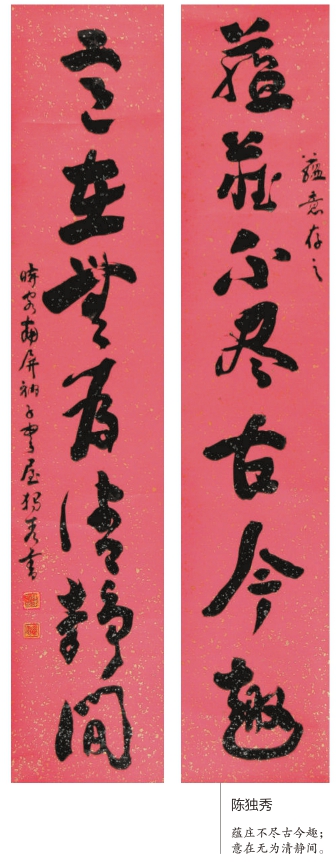 蘊莊不尽古今趣
蘊意存之
意在無為清靜間
時客南屏衲子屋独秀書
陈独秀
蕴庄不尽古今趣；
意在无为清静间。